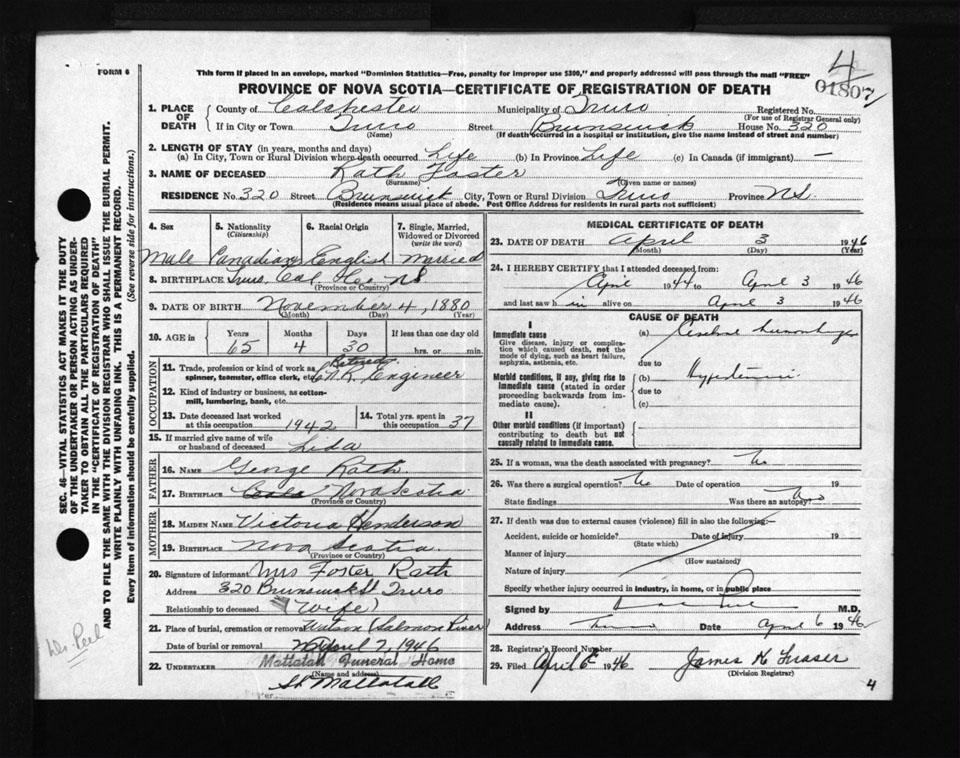 4
01807
FORM 6
This form if placed in an envelope, marked "Dominion Statistics—Free, penalty for improper use $300," and properly addressed will pass through the mail "FREE"
PROVINCE OF NOVA SCOTIA—CERTIFICATE OF REGISTRATION OF DEATH
1. PLACE OF DEATH
County of Colchester Municipality of Truro Registered No.
(For use of Registrar General only)
If in City or Town Truro Street Brunswick House No. 320
(Name) (If death occurred in a hospital or institution, give the name instead of street and number)
2. LENGTH OF STAY (in years, months and days)
(a) In City, Town or Rural Division where death occurred Life (b) In Province Life (c) In Canada (if immigrant) —
3. NAME OF DECEASED Rath Foster
(Surname) (Given name or names)
RESIDENCE No. 320 Street Brunswick City, Town or Rural Division Truro Province N.S.
(Residence means usual place of abode. Post Office Address for residents in rural parts not sufficient)
4. Sex 5. Nationality (Citizenship) 6. Racial Origin 7. Single, Married, Widowed or Divorced (write the word)
Male Canadian English Married
8. BIRTHPLACE Truro, Col. N.S.
(Province or Country)
9. DATE OF BIRTH November 4, 1880
(Month) (Day) (Year)
10. AGE in Years Months Days If less than one day old
65 4 30 hrs. or min.
OCCUPATION
11. Trade, profession or kind of work as spinner, teamster, office clerk, etc. Retired C.N.R. Engineer
12. Kind of industry or business, as cotton-mill, lumbering, bank, etc.
13. Date deceased last worked at this occupation 1942
14. Total yrs. spent in this occupation 37
15. If married give name of wife or husband of deceased Lida
FATHER
16. NAME George Rath
17. BIRTHPLACE Nova Scotia
(Province or Country)
MOTHER
18. MAIDEN NAME Victoria Henderson
19. BIRTHPLACE Nova Scotia
(Province or Country)
20. Signature of informant Mrs Foster Rath
Address 320 Brunswick St Truro
Relationship to deceased (Wife)
21. Place of burial, cremation or removal Watson (Salmon River)
Date of burial or removal April 7, 1946
22. UNDERTAKER Mattatall Funeral Home
(Name and address)
Mattatall
MEDICAL CERTIFICATE OF DEATH
23. DATE OF DEATH April 3 1946
(Month) (Day) (Year)
24. I HEREBY CERTIFY that I attended deceased from:
April 1944 to April 3 1946
and last saw h im alive on April 3 1946
CAUSE OF DEATH
I
Immediate cause (a) Cerebral hemorrhage
Give disease, injury or complication which caused death, not the mode of dying, such as heart failure, asphyxia, asthenia, etc.
due to
Morbid conditions, if any, giving rise to immediate cause (stated in order proceeding backwards from immediate cause). (b) Hypertension
due to
(c)
II
Other morbid conditions (if important) contributing to death but not causally related to immediate cause.
25. If a woman, was the death associated with pregnancy? No
26. Was there a surgical operation? No Date of operation 19
State findings Was there an autopsy? No
27. If death was due to external causes (violence) fill in also the following:—
Accident, suicide or homicide? Date of injury 19
(State which)
Manner of injury
(How sustained)
Nature of injury
Specify whether injury occurred in industry, in home, or in public place
Signed by M.D.
Address Truro Date April 6 1946
28. Registrar's Record Number
29. Filed April 6 1946 James K Fraser
(Division Registrar)
4
SEC. 46—VITAL STATISTICS ACT MAKES IT THE DUTY OF THE UNDERTAKER OR PERSON ACTING AS UNDERTAKER TO OBTAIN ALL THE PARTICULARS REQUIRED IN THE "CERTIFICATE OF REGISTRATION OF DEATH" AND TO FILE THE SAME WITH THE DIVISION REGISTRAR WHO SHALL ISSUE THE BURIAL PERMIT.
WRITE PLAINLY WITH UNFADING INK. THIS IS A PERMANENT RECORD.
Every item of information should be carefully supplied. (See reverse side for instructions.)